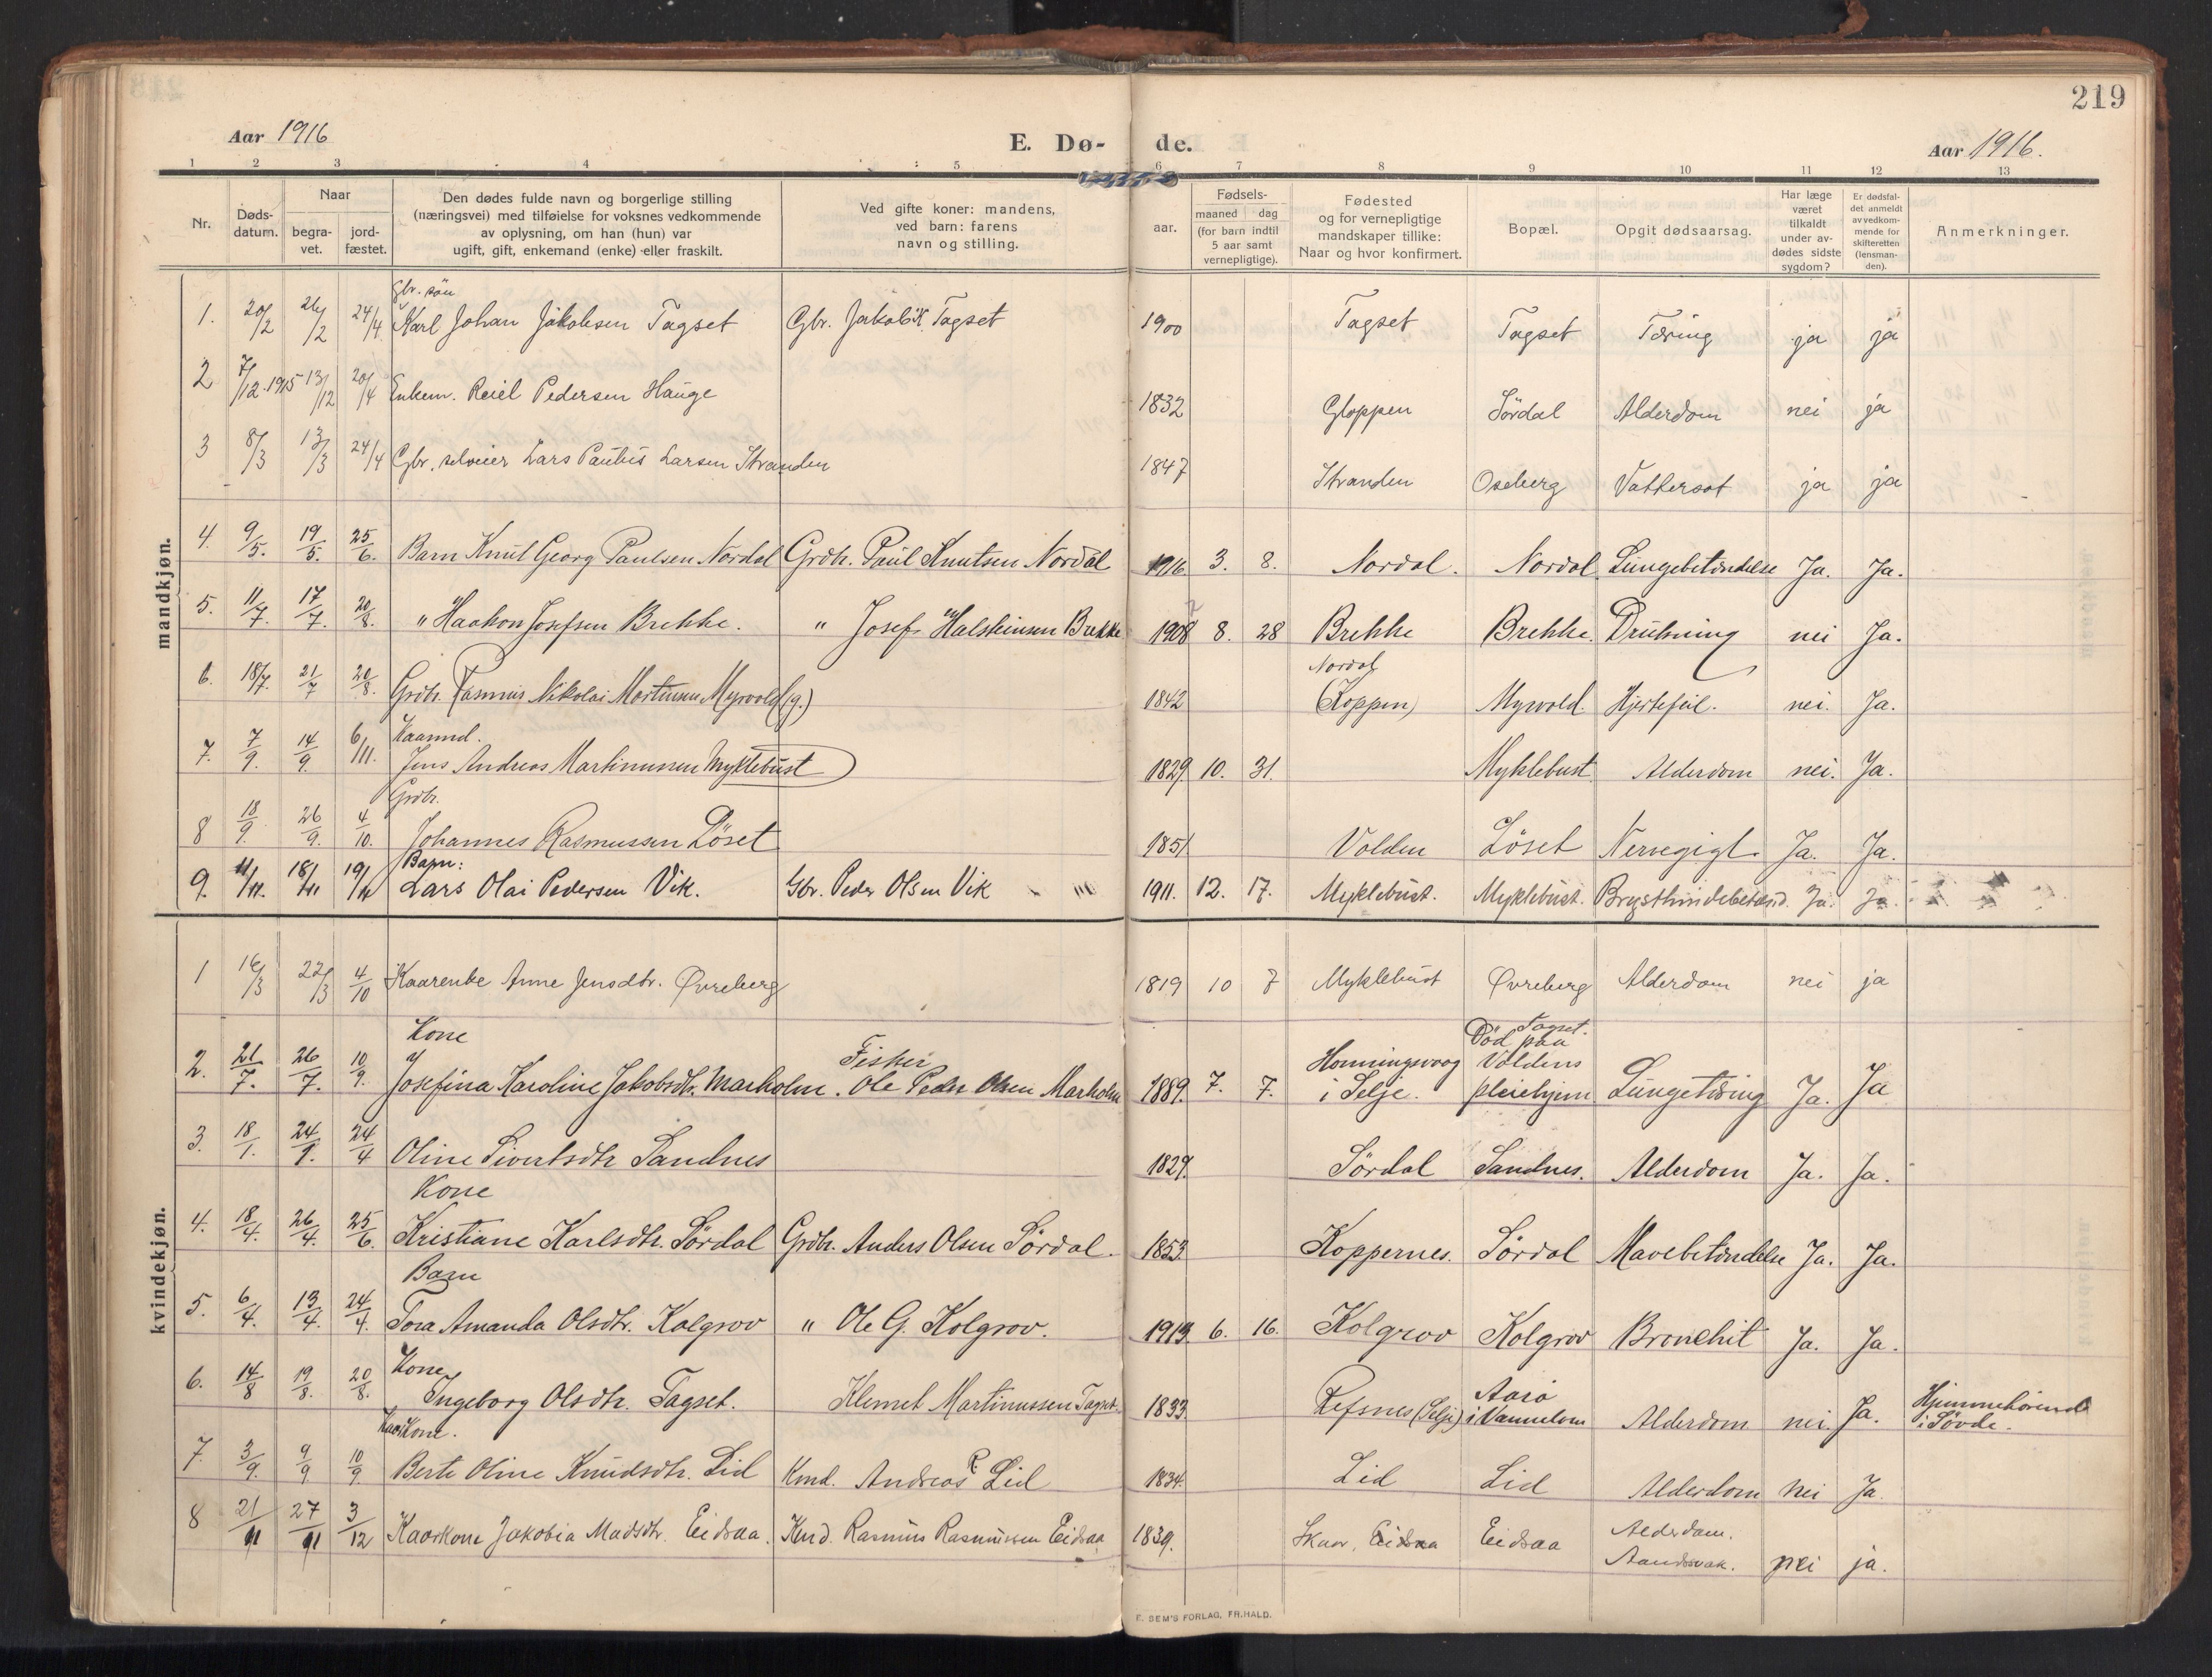 219
Aar 1916 E. Dø- de. Aar 1916.
1 2 3 4 5 6 7 8 9 10 11 12 13
Nr. Døds-datum. Naar begra-vet. jord-fæstet. Den dødes fulde navn og borgerlige stilling (næringsvei) med tilføielse for voksnes vedkommende av oplysning, om han (hun) var ugift, gift, enkemand (enke) eller fraskilt. Ved gifte koner: mandens, ved barn: farens navn og stilling. aar. Fødsels- maaned dag (for barn indtil 5 aar samt vernepligtige). Fødested og for vernepligtige mandskaper tillike: Naar og hvor konfirmert. Bopæl. Opgit dødsaarsag. Har læge været tilkaldt under av-dødes sidste sygdom? Er dødsfal-det anmeldt av vedkom-mende for skifteretten (lensman-den). Anmerkninger.
mandkjøn.
Gbr. søn
1. 20/2 26/2 24/4 Karl Johan Jakobsen Tagset Gbr. Jakob K. Tagset 1900 Tagset Tagset Tæring ja ja
2 7/12 1915 13/12 20/4 Enkem. Reiel Pedersen Hauge 1832 Gloppen Sördal Alderdom nei ja
3 8/3 13/3 24/4 Gbr. selveier Lars Paulus Larsen Stranden 1847 Stranden Oseberg Vattersot ja ja
4. 9/5. 19/5. 25/6. Barn Knut Georg Paulsen Nordal Grdbr. Paul Knutsen Nordal 1916. 3. 8. Nordal. Nordal Lungebetændelse Ja. Ja.
5. 11/7. 17/7. 20/8. " Haakon Josefsen Brekke. " Josef Halsteinsen Brekke 1908 8. 28 Brekke Brekke. Drukning nei Ja.
Nordal
6. 18/7. 21/7 20/8. Grdbr. Rasmus Nikolai Martinsen Myrvold (g.) 1842 (Koppen) Myrvold. Hjertefeil. nei. Ja.
Kaarmd.
7. 7/9. 14/9. 6/11. Jens Andreas Martinussen Myklebust 1829. 10. 31. Myklebust Alderdom nei. Ja.
Grdbr.
8 18/9. 26/9. 4/10. Johannes Rasmussen Löset 1851. Volden Löset Nervegigt. Ja. Ja.
Barn:
9. 11/11. 18/11 19/11 Lars Olai Pedersen Vik. Gbr. Peder Olsen Vik 1911. 12. 17. Myklebust. Myklebust. Brysthindebetænd. Ja. Ja.
kvindekjøn.
1 16/3 22/3 4/10 Kaarenke Anne Jensdtr. Øvreberg 1819 10 7 Myklebust Øvreberg Alderdom nei ja
Kone Fisker Tagset. Död paa
2. 21/7. 26/7. 10/9. Josefina Karoline Jakobsdtr. Marholm. Ole Peder Olsen Marholm 1889. 7. 7. Honningsvaag i Selje. Voldens pleiehjem Lungetæring Ja. Ja
3. 18/1. 24/1. 24/4 Oline Sivertsdtr Sandnes 1829. Sördal Sandnes. Alderdom Ja. Ja.
Kone
4. 18/4. 26/4. 25/6. Kristiane Karlsdtr. Sördal Grdbr. Anders Olsen Sördal. 1853. Koppernes. Sördal Mavebetændelse Ja. Ja.
Barn
5. 6/4. 13/4. 24/4. Tora Amanda Olsdtr. Kolgrov " Ole G. Kolgrov. 1913. 6. 16. Kolgrov Kolgrov Bronchit Ja. Ja.
Kone
6. 14/8 19/8. 20/8. Ingeborg Olsdtr. Tagset. Klemet Martinussen Tagset. 1833. Refsnes (Selje) i Vannelven Alderdom nei. Ja. Hjemmehörende i Sövde.
Kaarkone.
7. 3/9. 9/9 10/9 Berte Oline Knudsdtr. Lid Kmd. Andreas R. Lid 1834. Lid Lid Alderdom nei Ja.
8 21/11 27/11 3/12 Kaarkone Jakobia Madsdtr. Eidsaa. Kmd. Rasmus Rasmussen Eidsaa 1839. Skaar, Eidsaa Eidsaa Alderdom. Aandssvak. nei ja.
E. SEM'S FORLAG, FR.HALD.